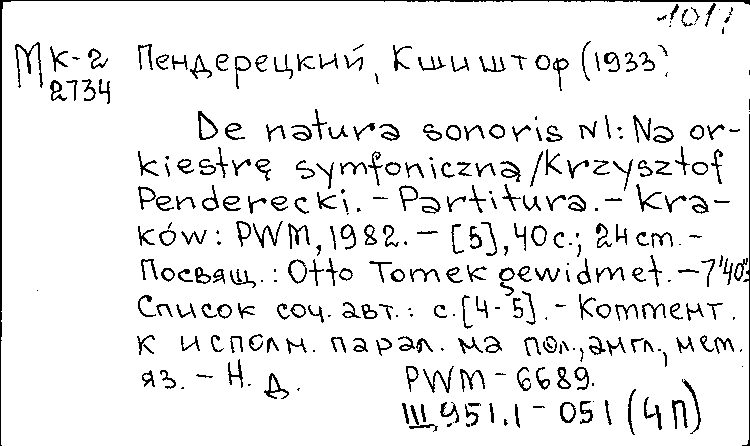 101
Мк-2 Пендерецкий, Кшиштоф (1933)
2734
De natura sonoris N1: Na or-
kiestrę symfoniczną/Krzysztof
Penderecki. - Partitura. - Kra-
ków: PWM, 1982. - [5], 40 с.; 24 cm. -
Посвящ.: Otto Tomek gewidmet. - 7'40"
Список соч. авт.: с. [4-5]. - Коммент.
к исполн. парал. на пол., англ., нем.
яз. - Н. Д. PWM - 6689.
III, 951.1 - 051 (4П)